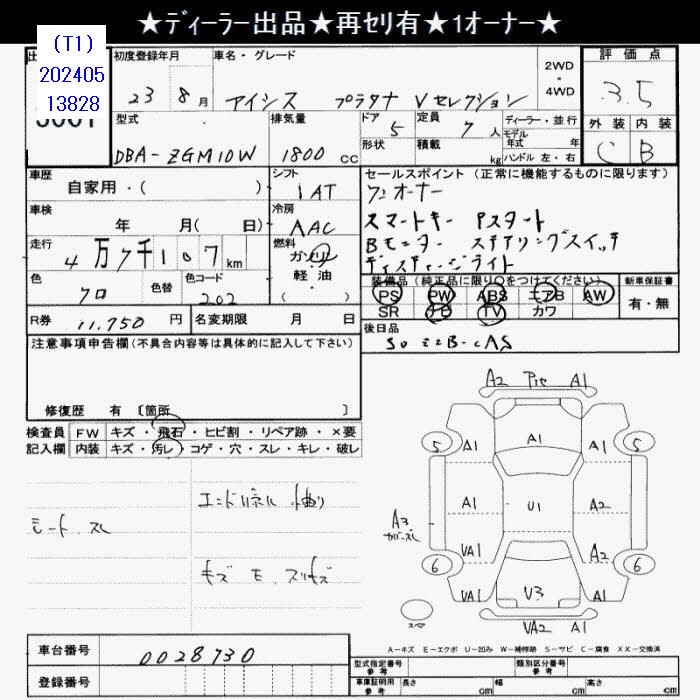 ★ディーラー出品★再セリ有★1オーナー★
(T1)
202405
13828
初度登録年月
23 8月
車名・グレード
アイシス プラタナ Vセレクション
2WD
・
4WD
評価点
3.5
外装 内装
C B
型式
DBA-ZGM10W
排気量
1800 CC
ドア
5
形状
定員
7人
積載
kg
ディーラー・並行
モデル
年式 年
ハンドル 左・右
車歴
自家用・( )
シフト
IAT
車検
年 月( 日)
冷房
AAC
走行
4万7千107km
燃料
ガソリン
軽・油
( )
色
クロ
色替
色コード
202
R券 11,750 円
名変期限 月 日
セールスポイント (正常に機能するものに限ります)
ワンオーナー
スマートキー Pスタート
Bモニター ステアリングスイッチ
ディスチャージライト
装備品(純正品に限り○をつけてください)
PS PW ABS エアB AW
SR ナビ TV カワ
新車保証書
有・無
後日品
注意事項申告欄(不具合内容等は具体的に記入して下さい)
修復歴 有 〔箇所 〕
検査員
記入欄
FW キズ・飛石・ヒビ割・リペア跡・×要
内装 キズ・汚レ・コゲ・穴・スレ・キレ・破レ
シート スレ
エンドパネル 曲り
キズ E スリキズ
A2 Pセ A1
5 A1 A1 A1 5
A1 U1 A2
A3
カバースレ
VA1 A2
6 6
VA1 U3 A1
スペア
VA2 A1
A-キズ E-エクボ U-凹み W-補修跡 S-サビ C-腐食 XX-交換済
車台番号 0028730
登録番号
型式指定番号
参考
類別区分番号
参考
車庫証明用
参考
長さ cm
幅 cm
高さ cm